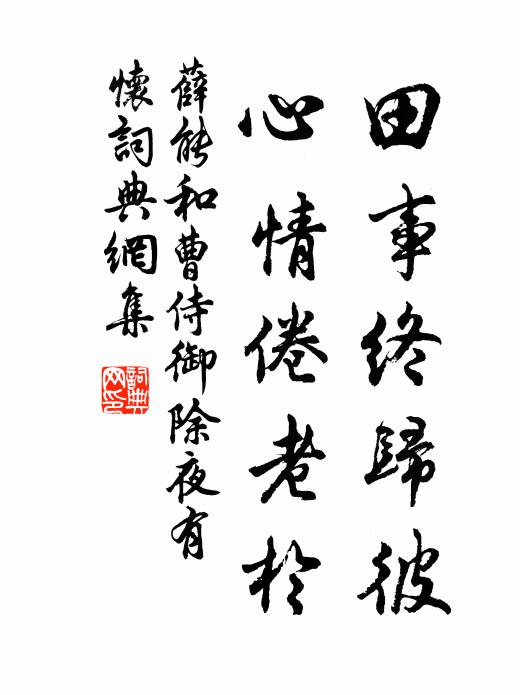 田事終歸彼
心情倦老於
薛能和曹侍御除夜有
懷詞典網集
詞典
网印